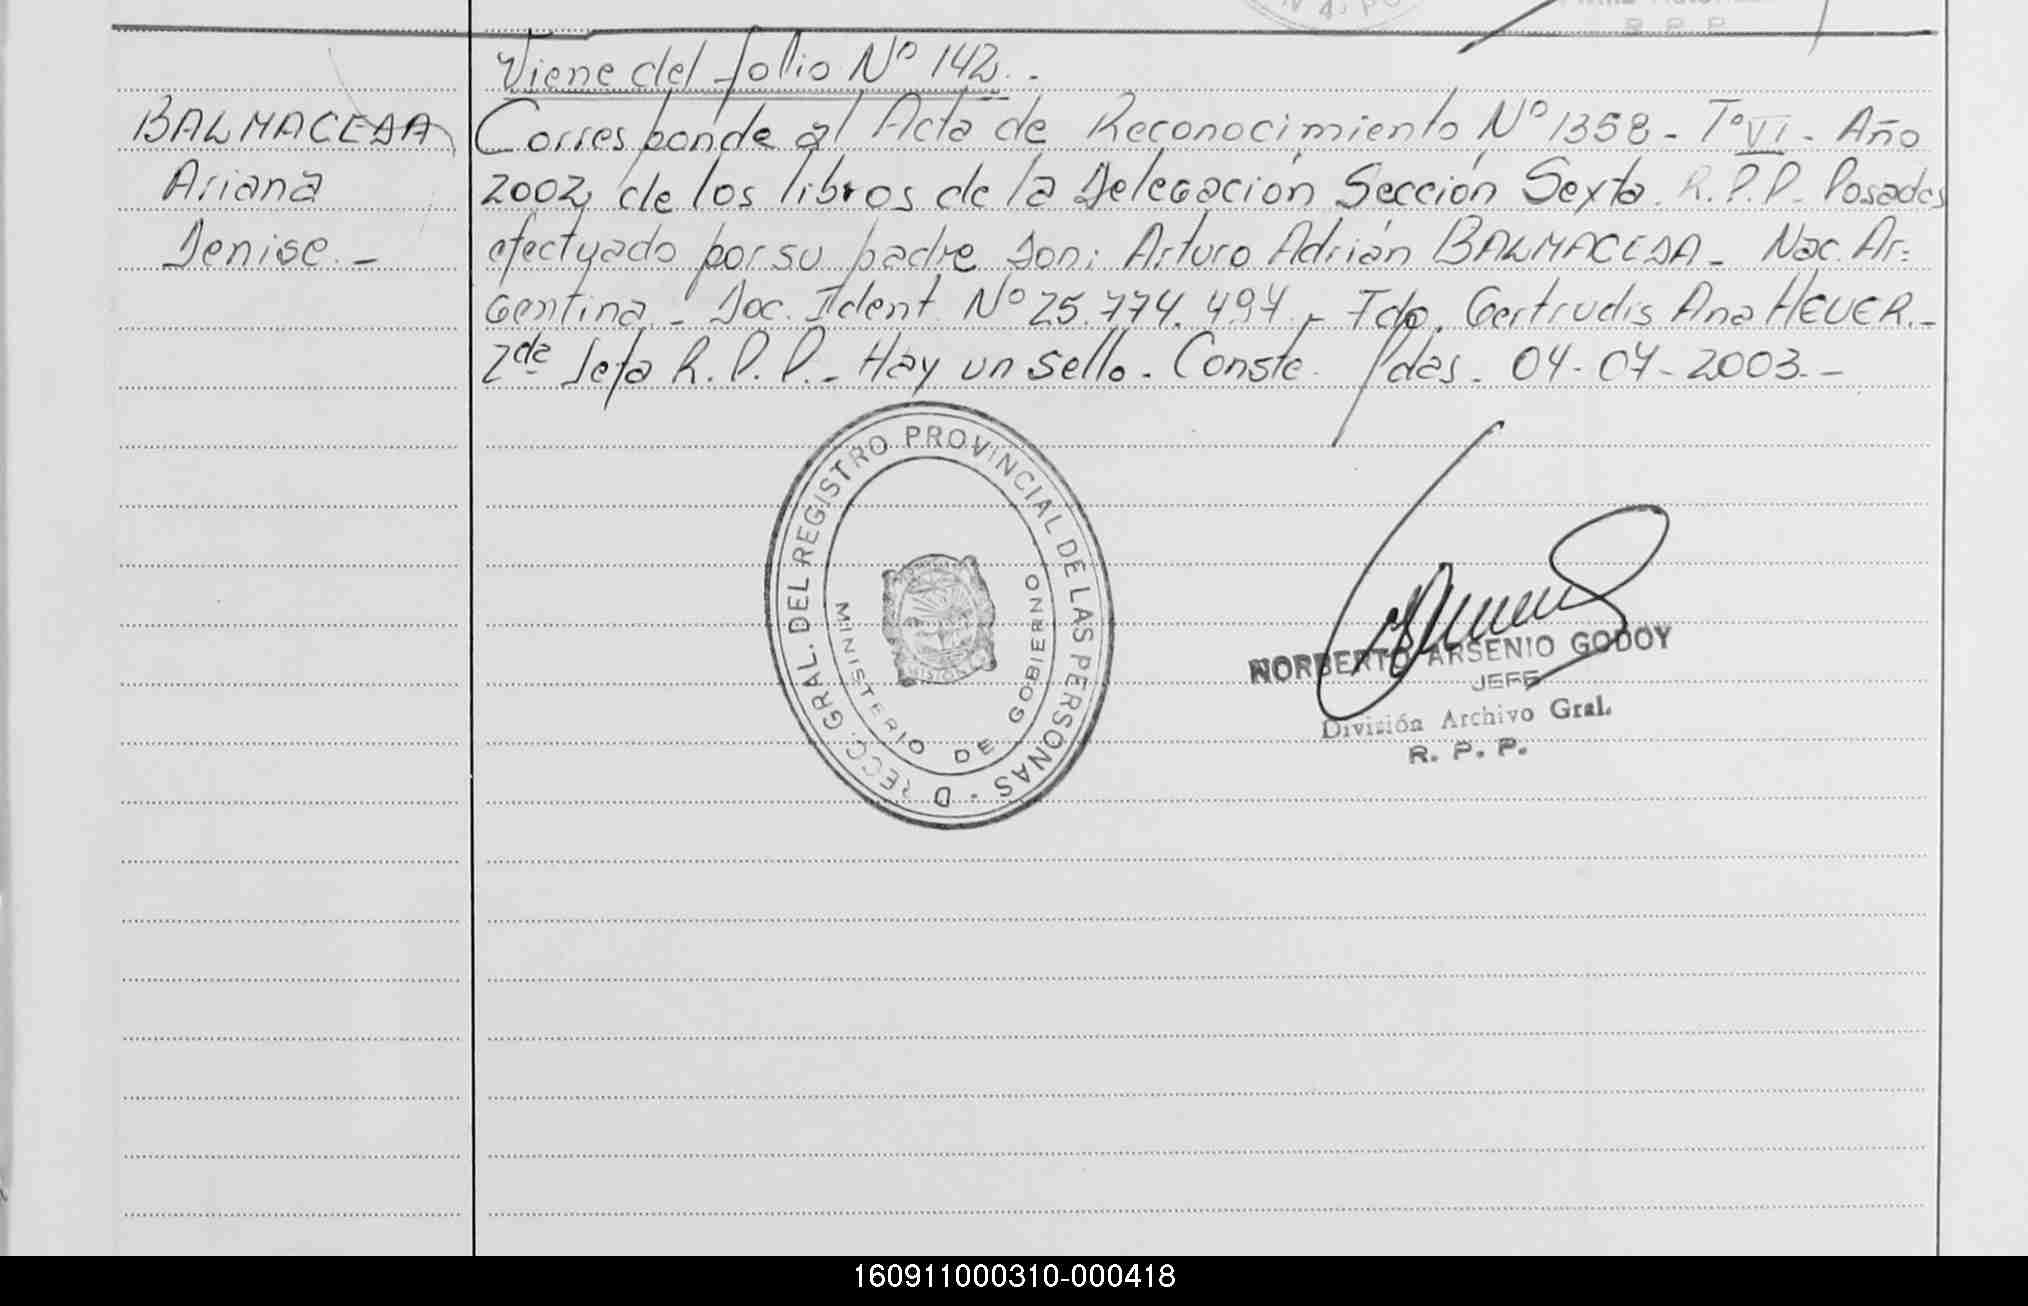 Viene del folio Nº 142.-
BALMACEDA
Ariana
Denise.-
Corresponde al Acta de Reconocimiento Nº 1358 - Tº VI - Año
2002, de los libros de la Delegación Sección Sexta. R.P.P. Posadas
efectuado por su padre Don: Arturo Adrián BALMACEDA - Nac. Ar=
gentina - Doc. Ident. Nº 25.774.497.- Fdo. Gertrudis Ana HEUER.-
2da Jefa R.P.P.- Hay un sello. Conste. Pdas. 04-07-2003.-
DIRECC. GRAL. DEL REGISTRO PROVINCIAL DE LAS PERSONAS -
MINISTERIO DE GOBIERNO
NORBERTO ARSENIO GODOY
JEFE
División Archivo Gral.
R. P. P.
160911000310-000418